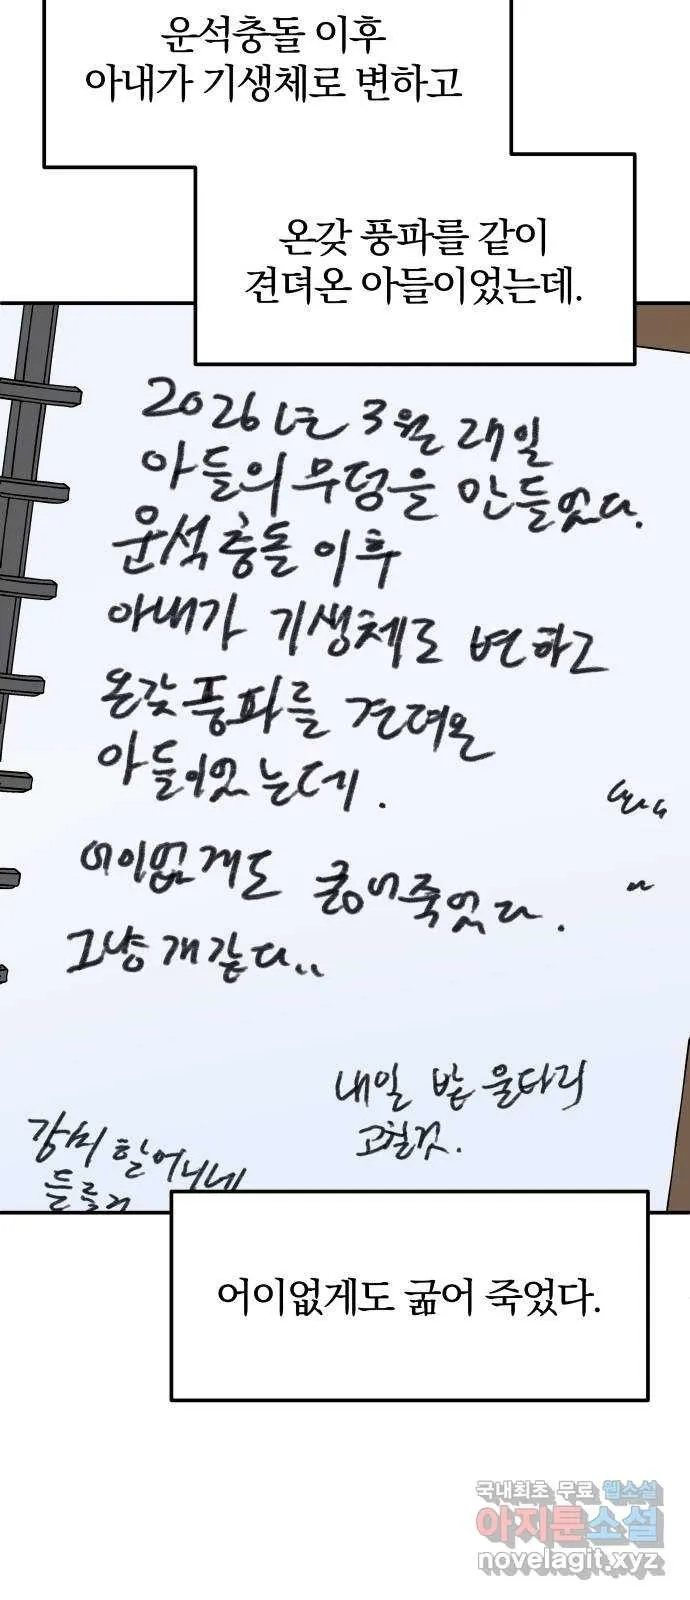 운석충돌 이후
아내가 기생체로 변하고
온갖 풍파를 같이
견뎌온 아들이었는데.
2026년 3월 24일
아들의 무덤을 만들었다.
운석충돌 이후
아내가 기생체로 변하고
온갖 풍파를 견뎌온
아들이었는데.
어이없게도 굶어죽었다.
그냥 개같다..
내일 밭 울타리
고칠것.
할머니네
어이없게도 굶어 죽었다.
국내최초 무료 웹소설
아지툰소설
novelagit.xyz